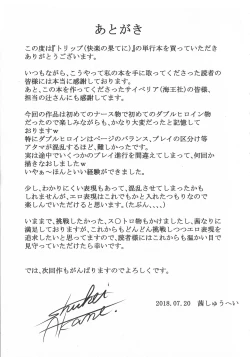 あとがき
この度は『トリップ(快楽の果てに)』の単行本を買っていただき
ありがとうございます。
いつもながら、こうやって私の本を手に取ってくださった読者の
皆様には本当に感謝しております。
あと、この本を作ってくださったサイベリア(海王社)の皆様、
担当の辻さんにも感謝してます。
今回の作品は初めてのナース物で初めてのダブルヒロイン物
だったので楽しみながらも、かなり大変だったと記憶して
おりますｗ
特にダブルヒロインはページのバランス、プレイの区分け等
アタマが混乱するほど、難しかったです。
実は途中でいくつかのプレイ進行を間違えてしまって、何回か
描きなおしましたｗ
いやぁ〜ほんといい経験ができました。
少し、わかりにくい表現もあって、混乱させてしまったかも
しれませんが、エロ表現はこれでもかと入れたつもりなので
楽しんでいただけると思います。(たぶん、、、、)
いままで、挑戦したかった、ス〇トロ物もかけましたし、画なりに
満足しておりますが、これからもどんどん挑戦しつつエロ表現を
追求したいと思ってますので、読者様にはこれからも温かい目で
見守っていただけたら幸いです。
では、次回作もがんばりますのでよろしくです。
2018.07.20 茜しゅうへい
Shuhei
Akane.